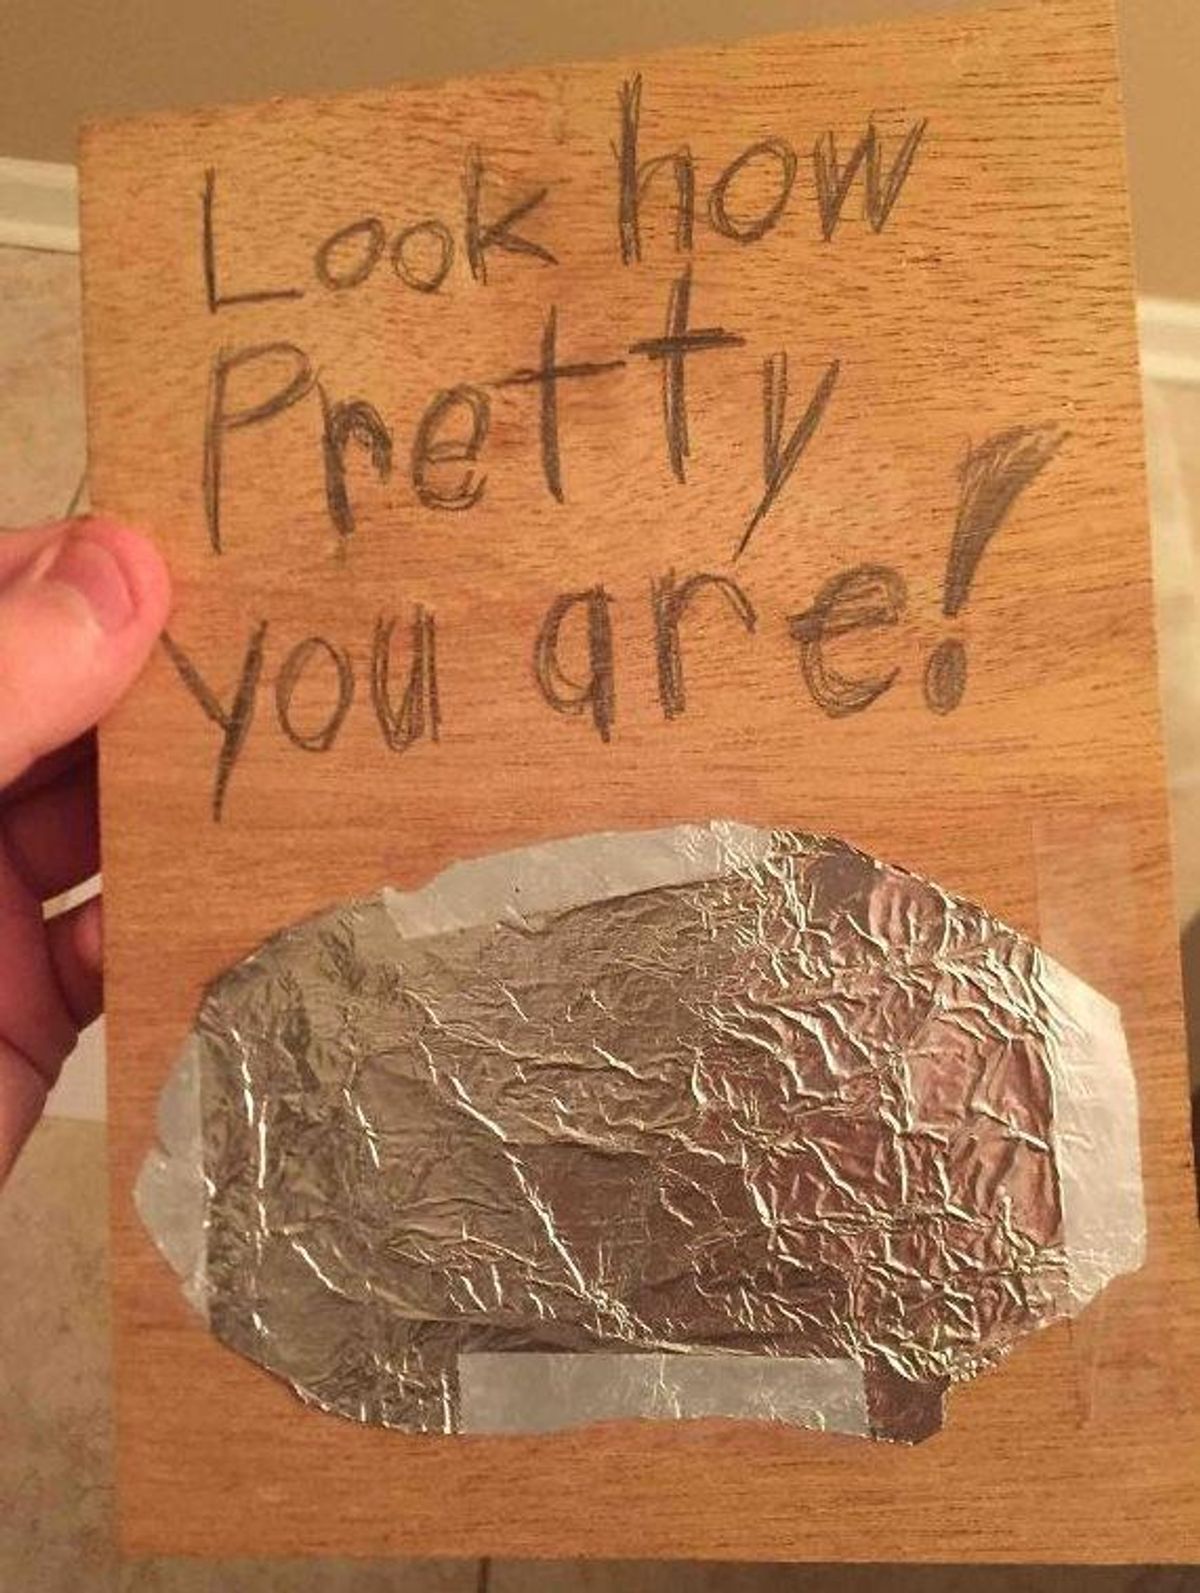 Look how
Pretty
you are!